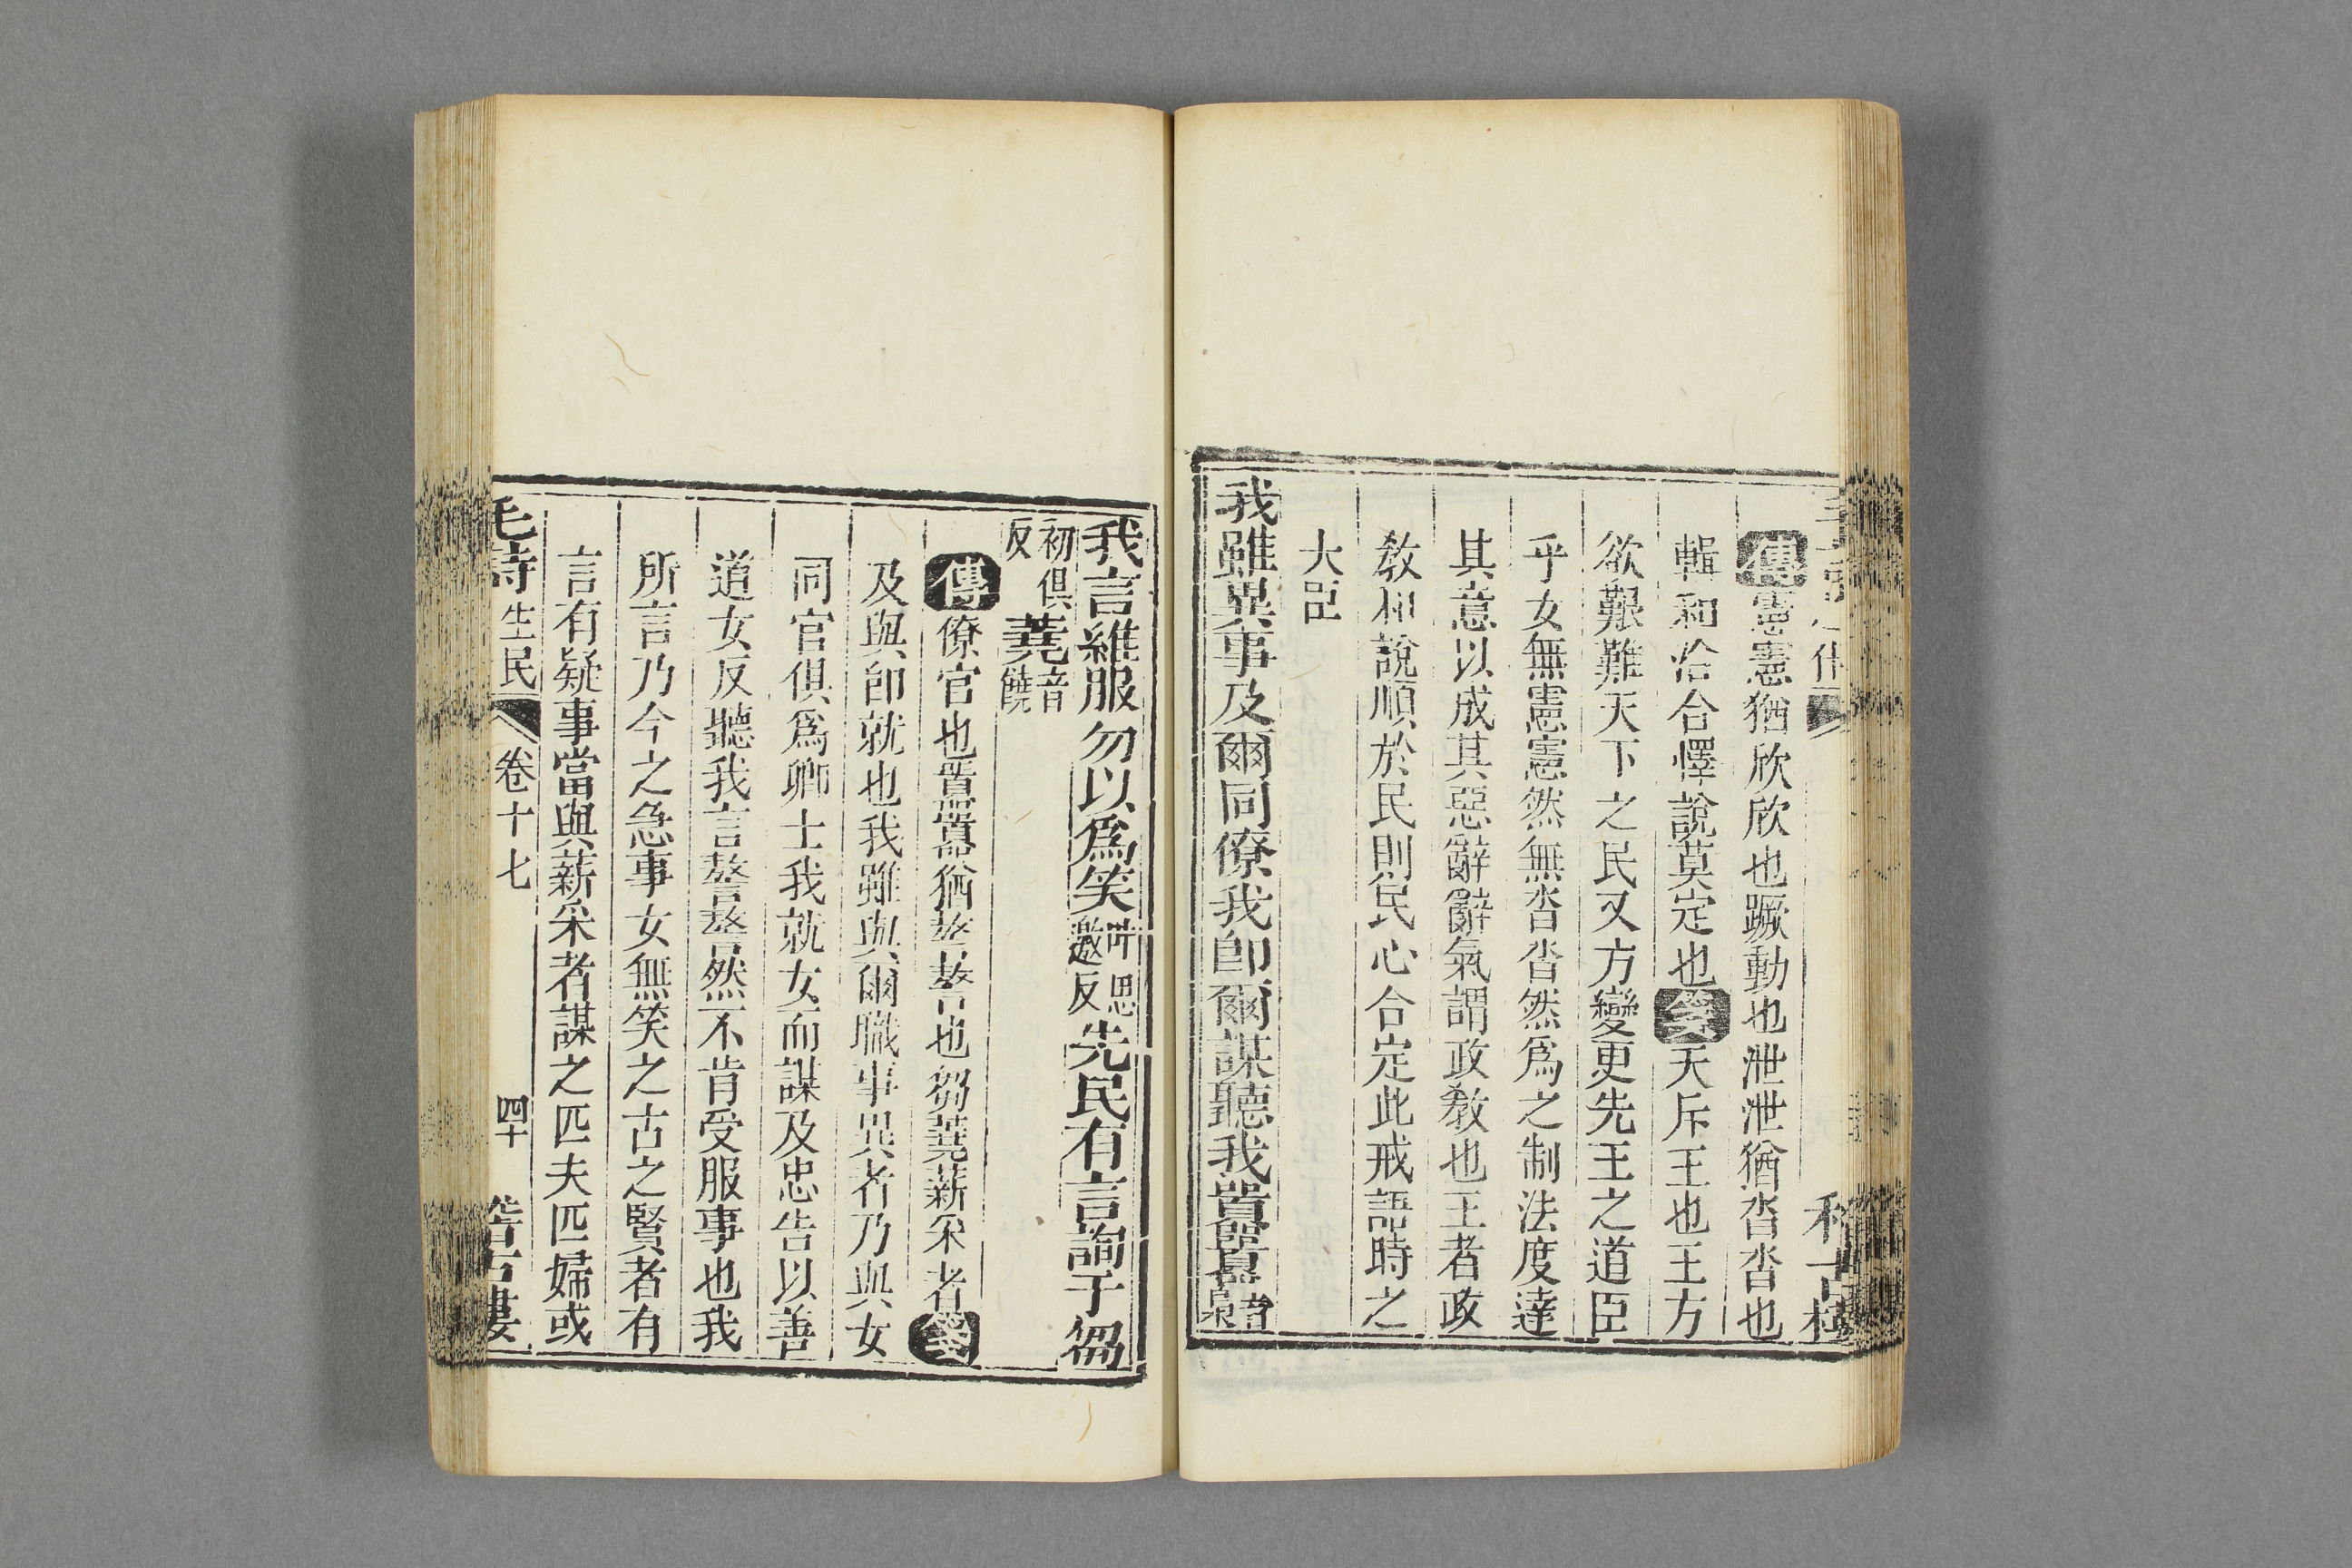 傳憲憲猶欣欣也蹶動也泄泄猶沓沓也
輯和洽合懌說莫定也箋天斥王也王方
欲艱難天下之民又方變更先王之道臣
乎女無憲憲然無沓沓然爲之制法度達
其意以成其惡辭辭氣謂政敎也王者政
敎和說順於民則民心合定此戒語時之
大臣
我雖異事及爾同僚我卽爾謀聽我嚻嚻音梟
我言維服勿以爲笑叶思邀反先民有言詢于芻
初俱反蕘音饒
傳僚官也嚻嚻猶謷謷也芻蕘薪采者箋
及與卽就也我雖與爾職事異者乃與女
同官俱爲卿士我就女而謀及忠告以善
道女反聽我言謷謷然不肯受服事也我
所言乃今之急事女無笑之古之賢者有
言有疑事當與薪采者謀之匹夫匹婦或
毛詩 生民 卷十七 四十